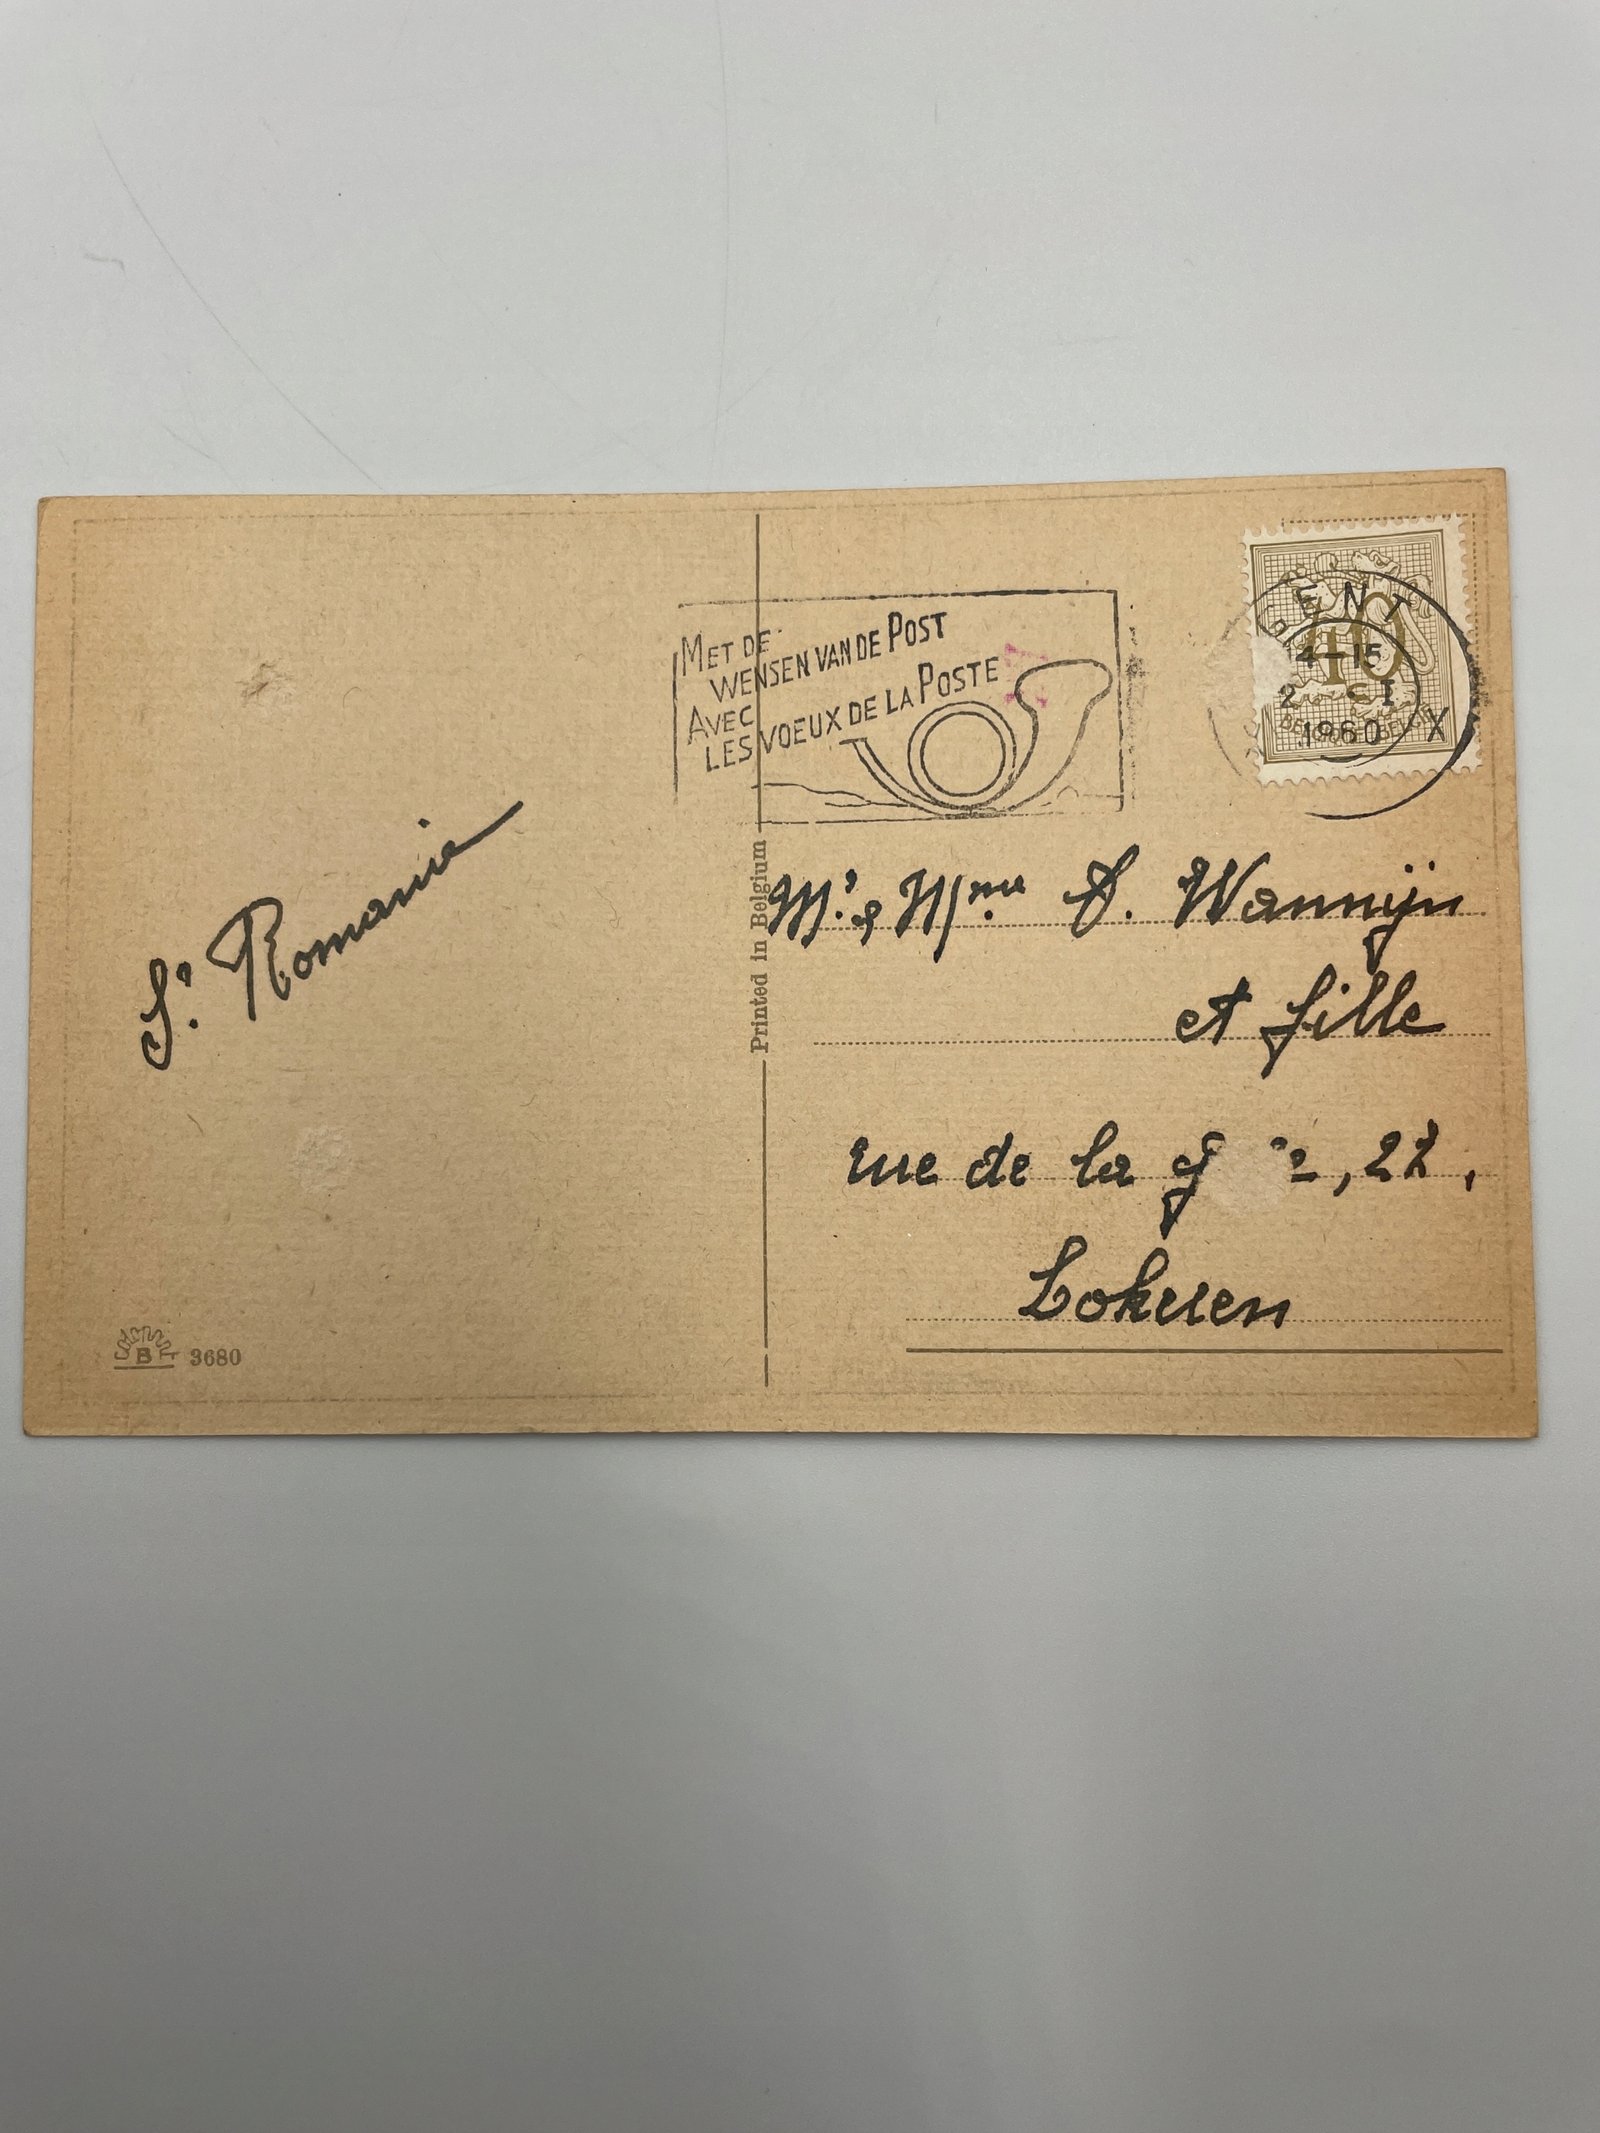 MET DE
WENSEN VAN DE POST
AVEC
LES VOEUX DE LA POSTE
ENT
40
14-15
2 I
1960
X
BELGIQUE-BELGIË
Sr. Romanie
Mr. & Mme. A. Wannijn
et fille
rue de la 22,
Lokeren
Printed in Belgium
B
3680